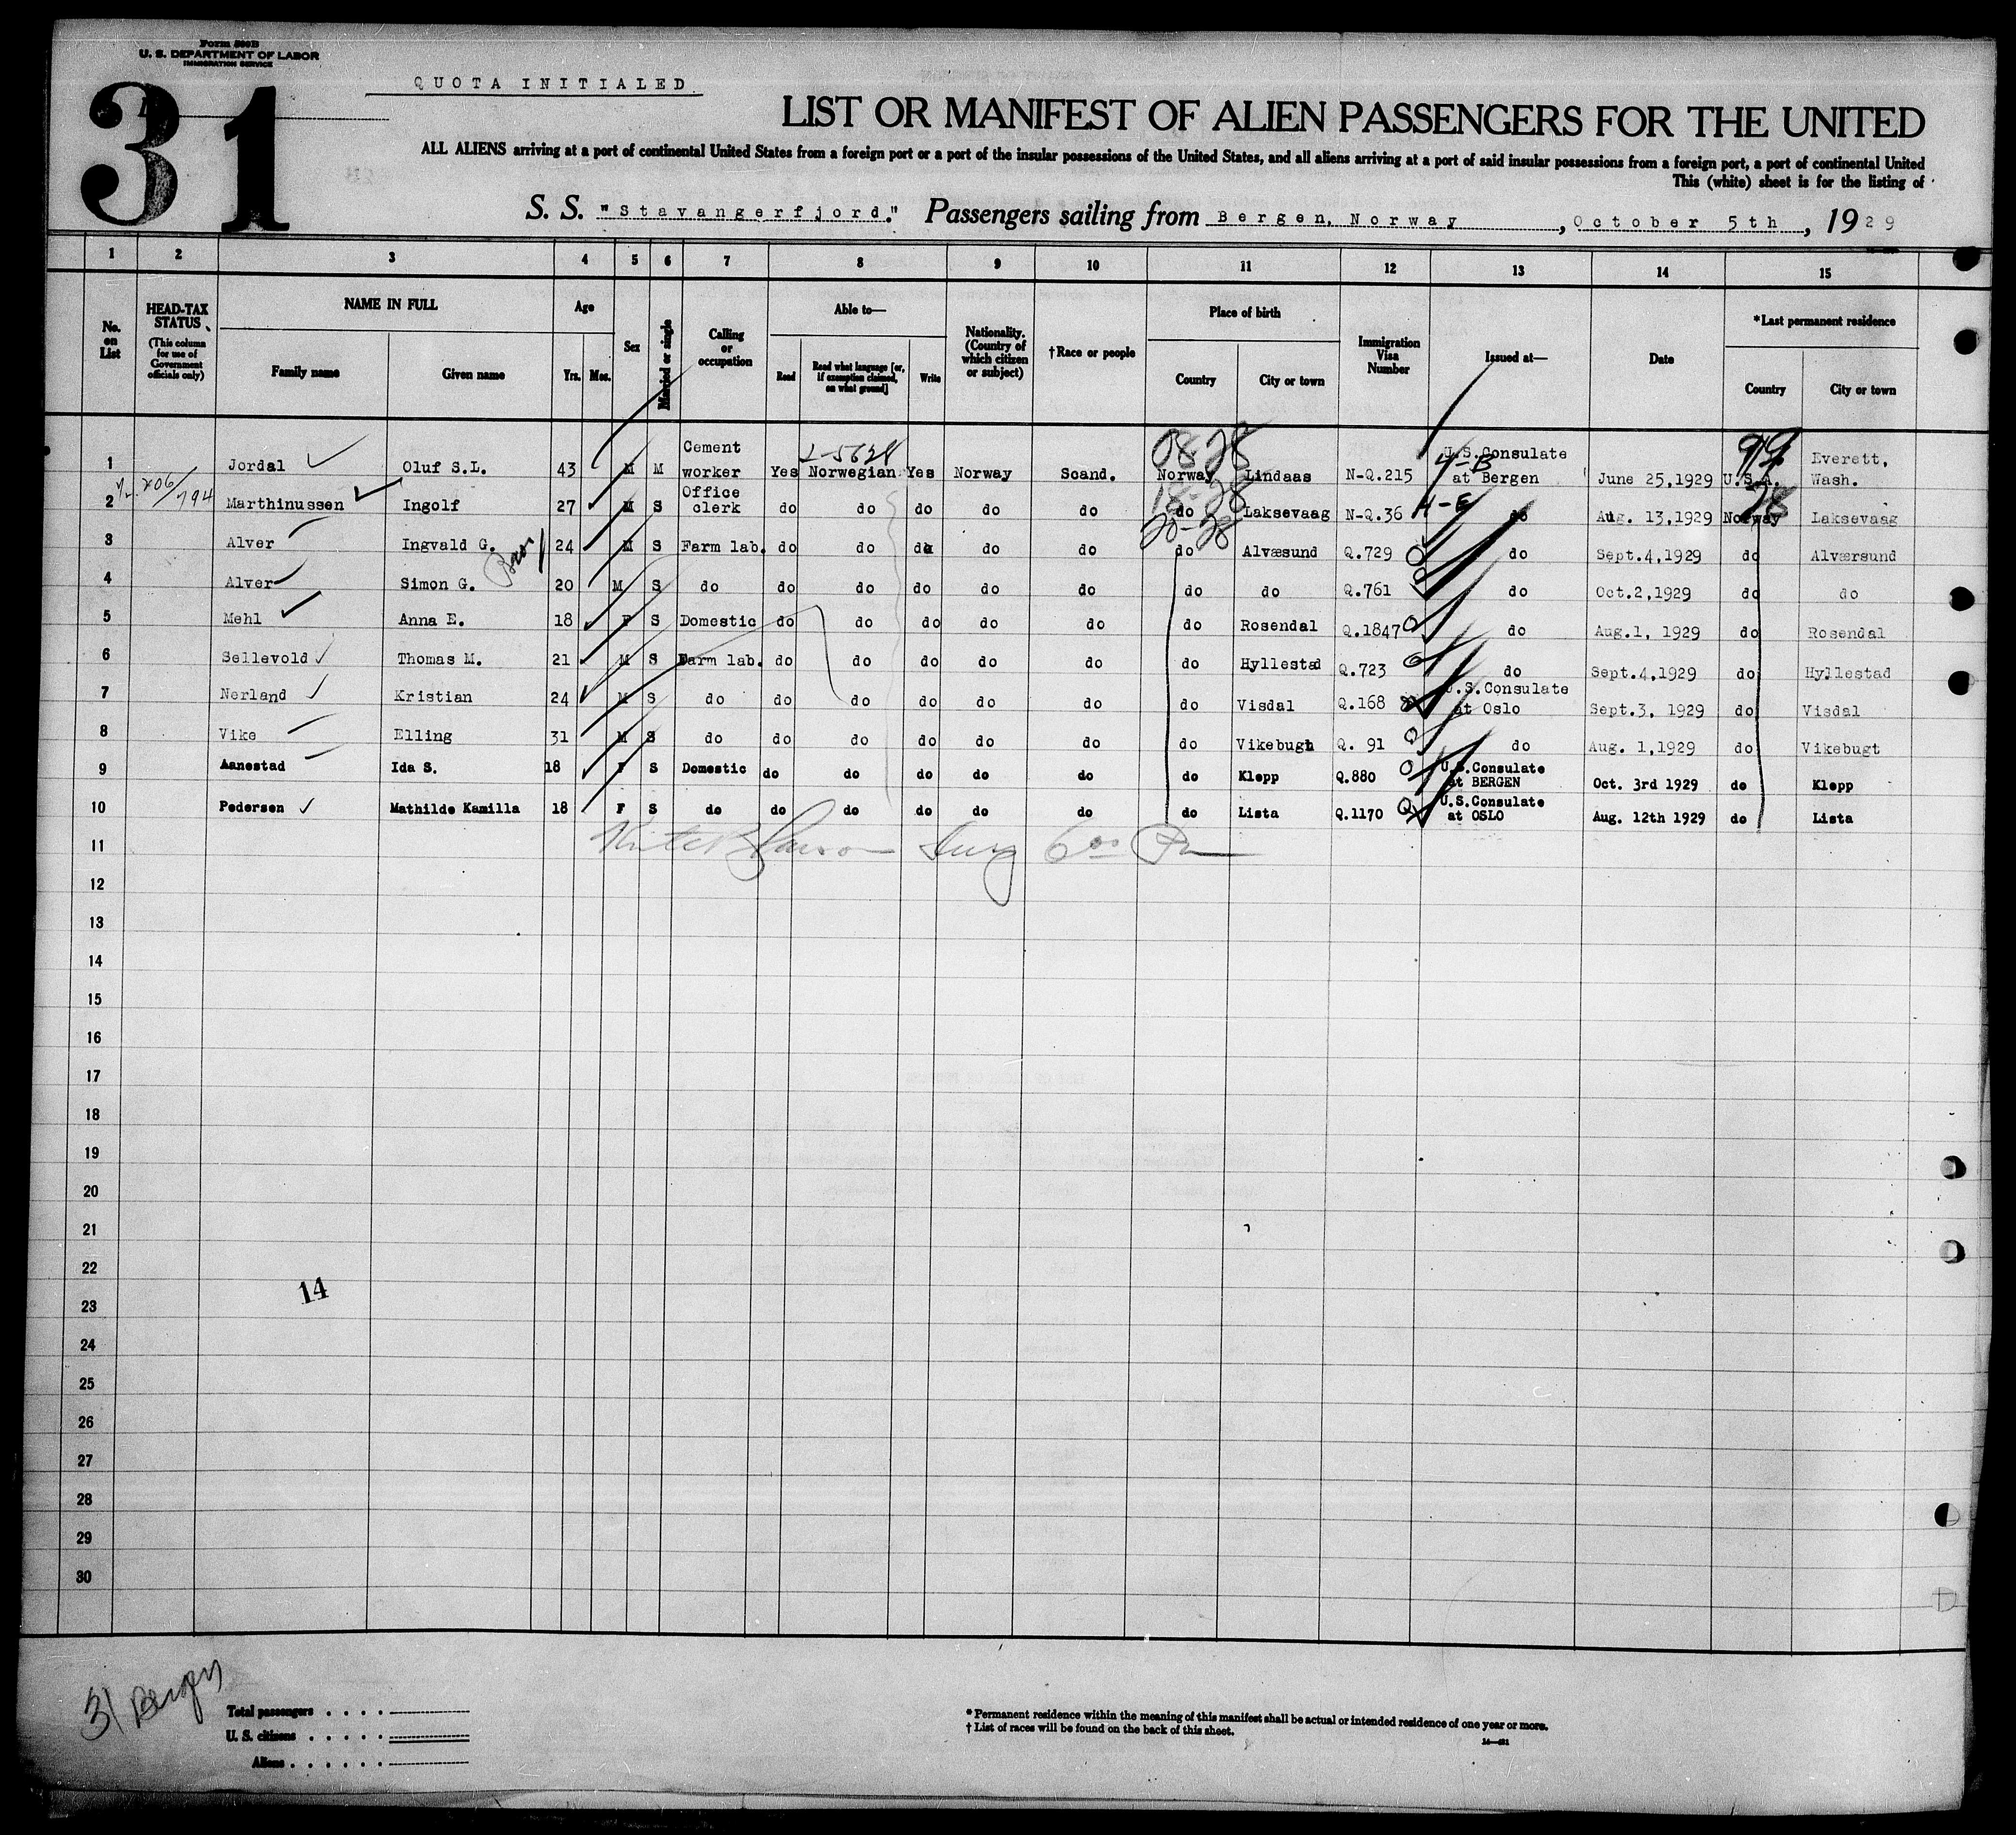 Form 500B
U. S. DEPARTMENT OF LABOR
IMMIGRATION SERVICE
QUOTA INITIALED
31
LIST OR MANIFEST OF ALIEN PASSENGERS FOR THE UNITED
ALL ALIENS arriving at a port of continental United States from a foreign port or a port of the insular possessions of the United States, and all aliens arriving at a port of said insular possessions from a foreign port, a port of continental United
This (white) sheet is for the listing of
S. S. "Stavangerfjord." Passengers sailing from Bergen, Norway, October 5th, 1929
1 2 3 4 5 6 7 8 9 10 11 12 13 14 15
No. on List
HEAD-TAX STATUS (This column for use of Government officials only)
NAME IN FULL
Family name Given name
Age
Yrs. Mos.
Sex
Married or single
Calling or occupation
Able to—
Read Read what language [or, if exemption claimed, on what ground] Write
Nationality. (Country of which citizen or subject)
†Race or people
Place of birth
Country City or town
Immigration Visa Number
Issued at—
Date
*Last permanent residence
Country City or town
1 Jordal Oluf S.L. 43 M M Cement worker Yes Norwegian Yes Norway Scand. Norway Lindaas N-Q.215 U.S.Consulate at Bergen June 25,1929 U.S.A. Everett, Wash.
2-5628
08-28
4-B
99
206/794
2 Marthinussen Ingolf 27 M S Office clerk do do do do do do Laksevaag N-Q.36 do Aug. 13,1929 Norway Laksevaag
18-28
4-E
28
3 Alver Ingvald G. 24 M S Farm lab. do do do do do do Alvæsund Q.729 do Sept.4,1929 do Alværsund
20-28
4 Alver Simon G. 20 M S do do do do do do do do Q.761 do Oct.2,1929 do do
5 Mehl Anna E. 18 F S Domestic do do do do do do Rosendal Q.1847 do Aug.1, 1929 do Rosendal
6 Sellevold Thomas M. 21 M S Farm lab. do do do do do do Hyllestad Q.723 do Sept.4,1929 do Hyllestad
7 Nerland Kristian 24 M S do do do do do do do Visdal Q.168 U.S.Consulate at Oslo Sept.3, 1929 do Visdal
8 Vike Elling 31 M S do do do do do do do Vikebugt Q. 91 do Aug. 1,1929 do Vikebugt
9 Aanestad Ida S. 18 F S Domestic do do do do do do Klepp Q.880 U.S.Consulate at BERGEN Oct. 3rd 1929 do Klepp
10 Pedersen Mathilde Kamilla 18 F S do do do do do do do Lista Q.1170 U.S.Consulate at OSLO Aug. 12th 1929 do Lista
11
12
13
14
15
16
17
18
19
20
21
22
14
23
24
25
26
27
28
29
30
31 Bergen
Total passengers
U. S. citizens
Aliens
* Permanent residence within the meaning of this manifest shall be actual or intended residence of one year or more.
† List of races will be found on the back of this sheet.